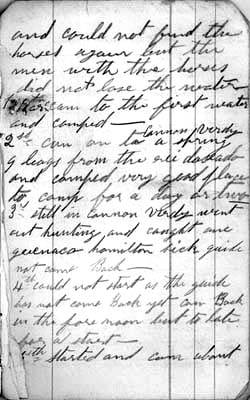 and could not find the
horses again but the
men with the horses
did not lose the water
cam to the first water
and camped —
Cannon Verdy
2nd cam on to a spring
9 leags from the rie daslado
and camped very good place
to camp for a day or two
3rd still in Cannon Verdy went
out hunting and caught one
guenaco hamilton sick guide
not come Back —
4th could not start as the guide
has not come Back yet cam Back
in the fore noon but to late
for a start —
started and cam about